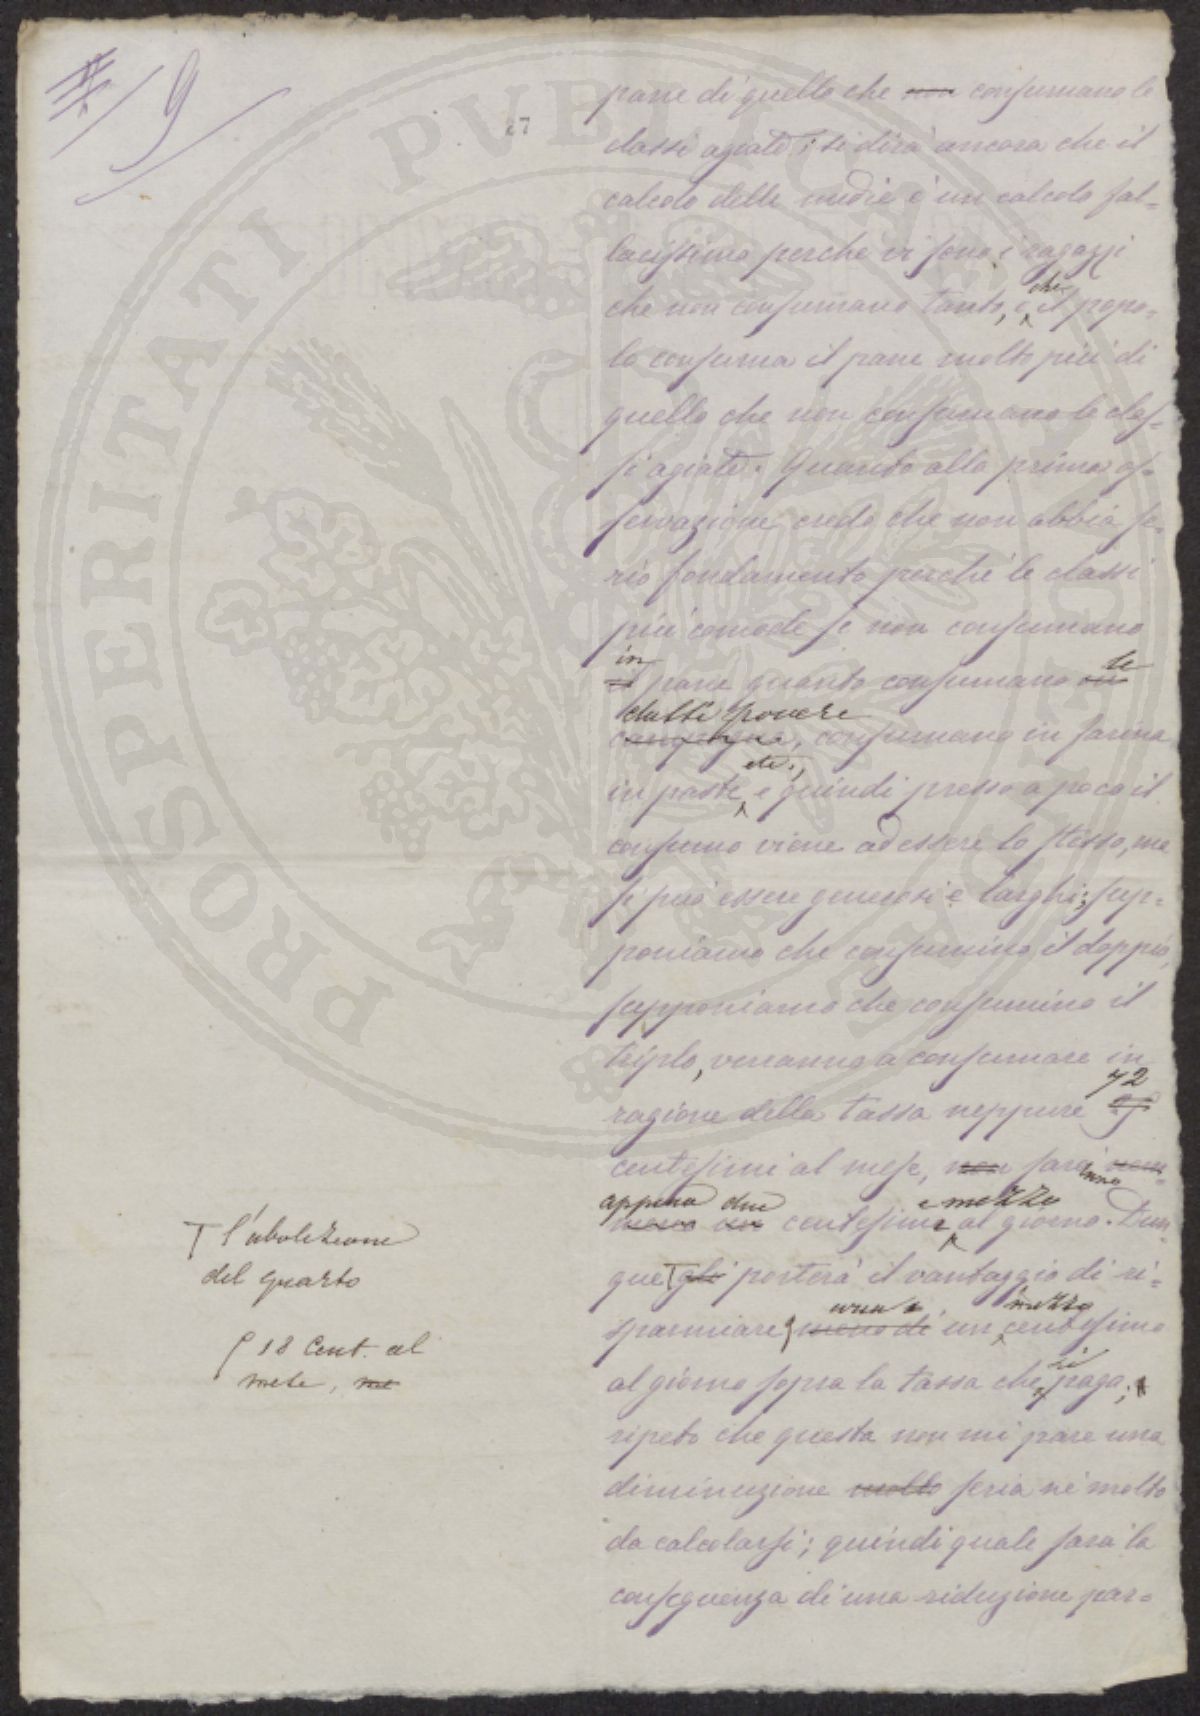 9
27
pane di quello che non consumano le
classi agiate; si dirà ancora che il
calcolo delle medie è un calcolo fal-
lacissimo perchè vi sono i ragazzi
che non consumano tanto, e che il popo-
lo consuma il pane molto più di
quello che non consumano le clas-
si agiate. Quando alla prima os-
servazione credo che non abbia se-
rio fondamento perchè le classi
più comode se non consumano
in
il pane quanto consumano in le
classi povere
campagna, consumano in farina
in paste etc., e quindi presso a poco il
consumo viene ad essere lo stesso, ma
si può essere generosi e larghi; sup-
poniamo che consumino il doppio,
supponiamo che consumino il
triplo, verranno a consumare in
ragione della tassa neppure 72
centesimi al mese, non saranno
appena due e mezzo
meno un centesimi al giorno. Dun-
que gli porterà il vantaggio di ri-
sparmiare meno di un mezzo centesimo
al giorno sopra la tassa che si paga;
ripeto che questa non mi pare una
diminuzione molto seria nè molto
da calcolarsi; quindi quale sarà la
conseguenza di una riduzione par-
l'abolizione
del quarto
18 Cent. al
mese, me
PROSPERITATI PVBLICAE